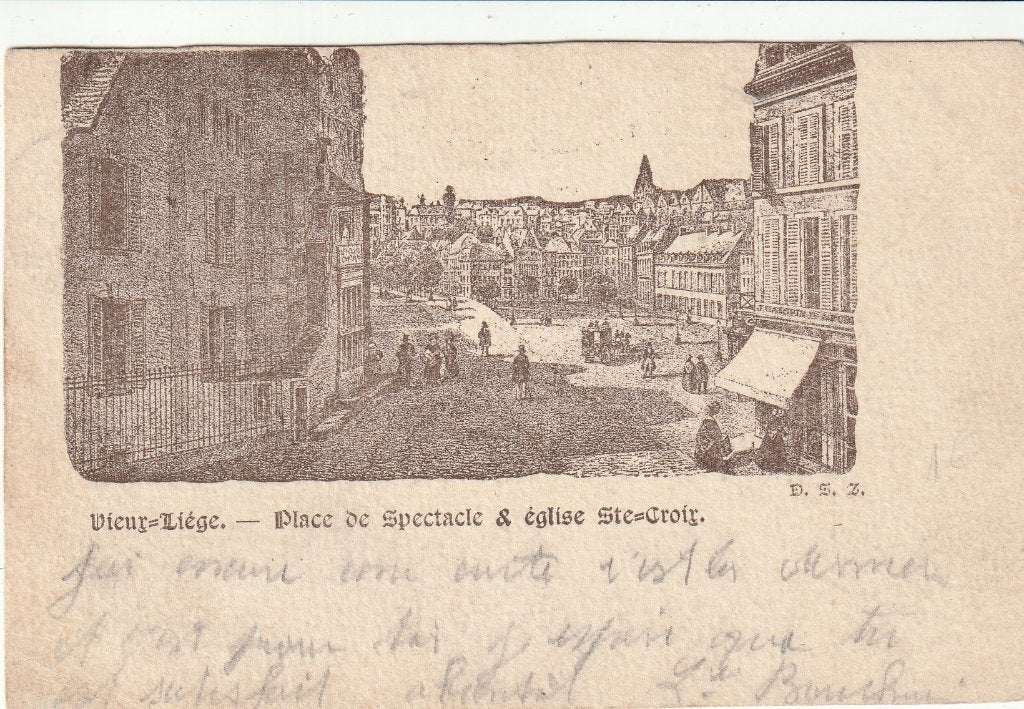 D. S. Z.
Vieux-Liége. — Place de Spectacle & église Ste-Croix.
J'ai encore une carte c'est la dernière
et c'est pour toi j'espère que tu
est satisfait